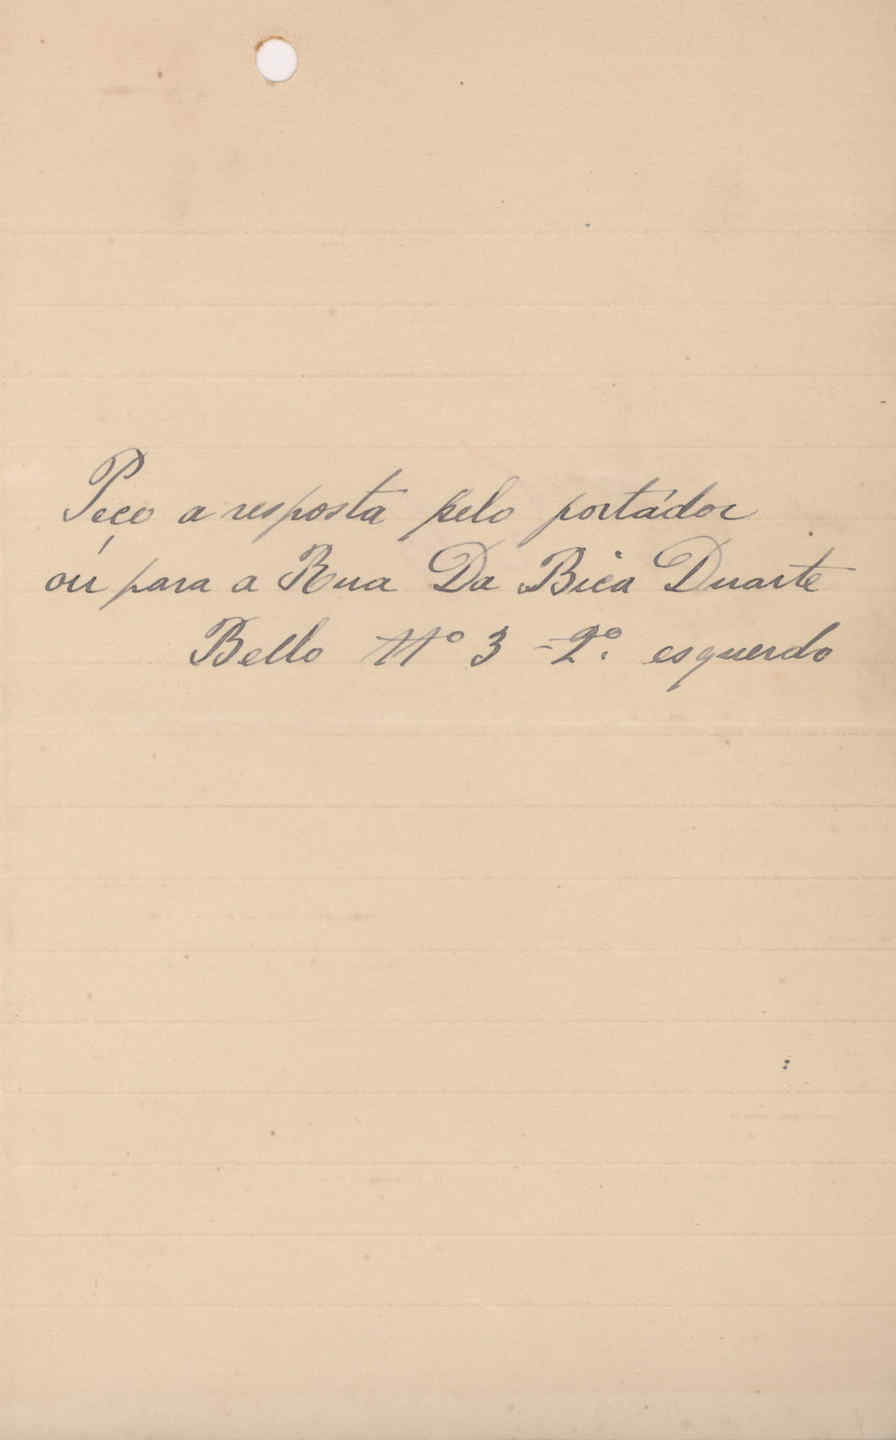 Peço a resposta pelo portádor
oú para a Rua Da Bica Duarte
Bello Nº 3 - 2º. esquerdo